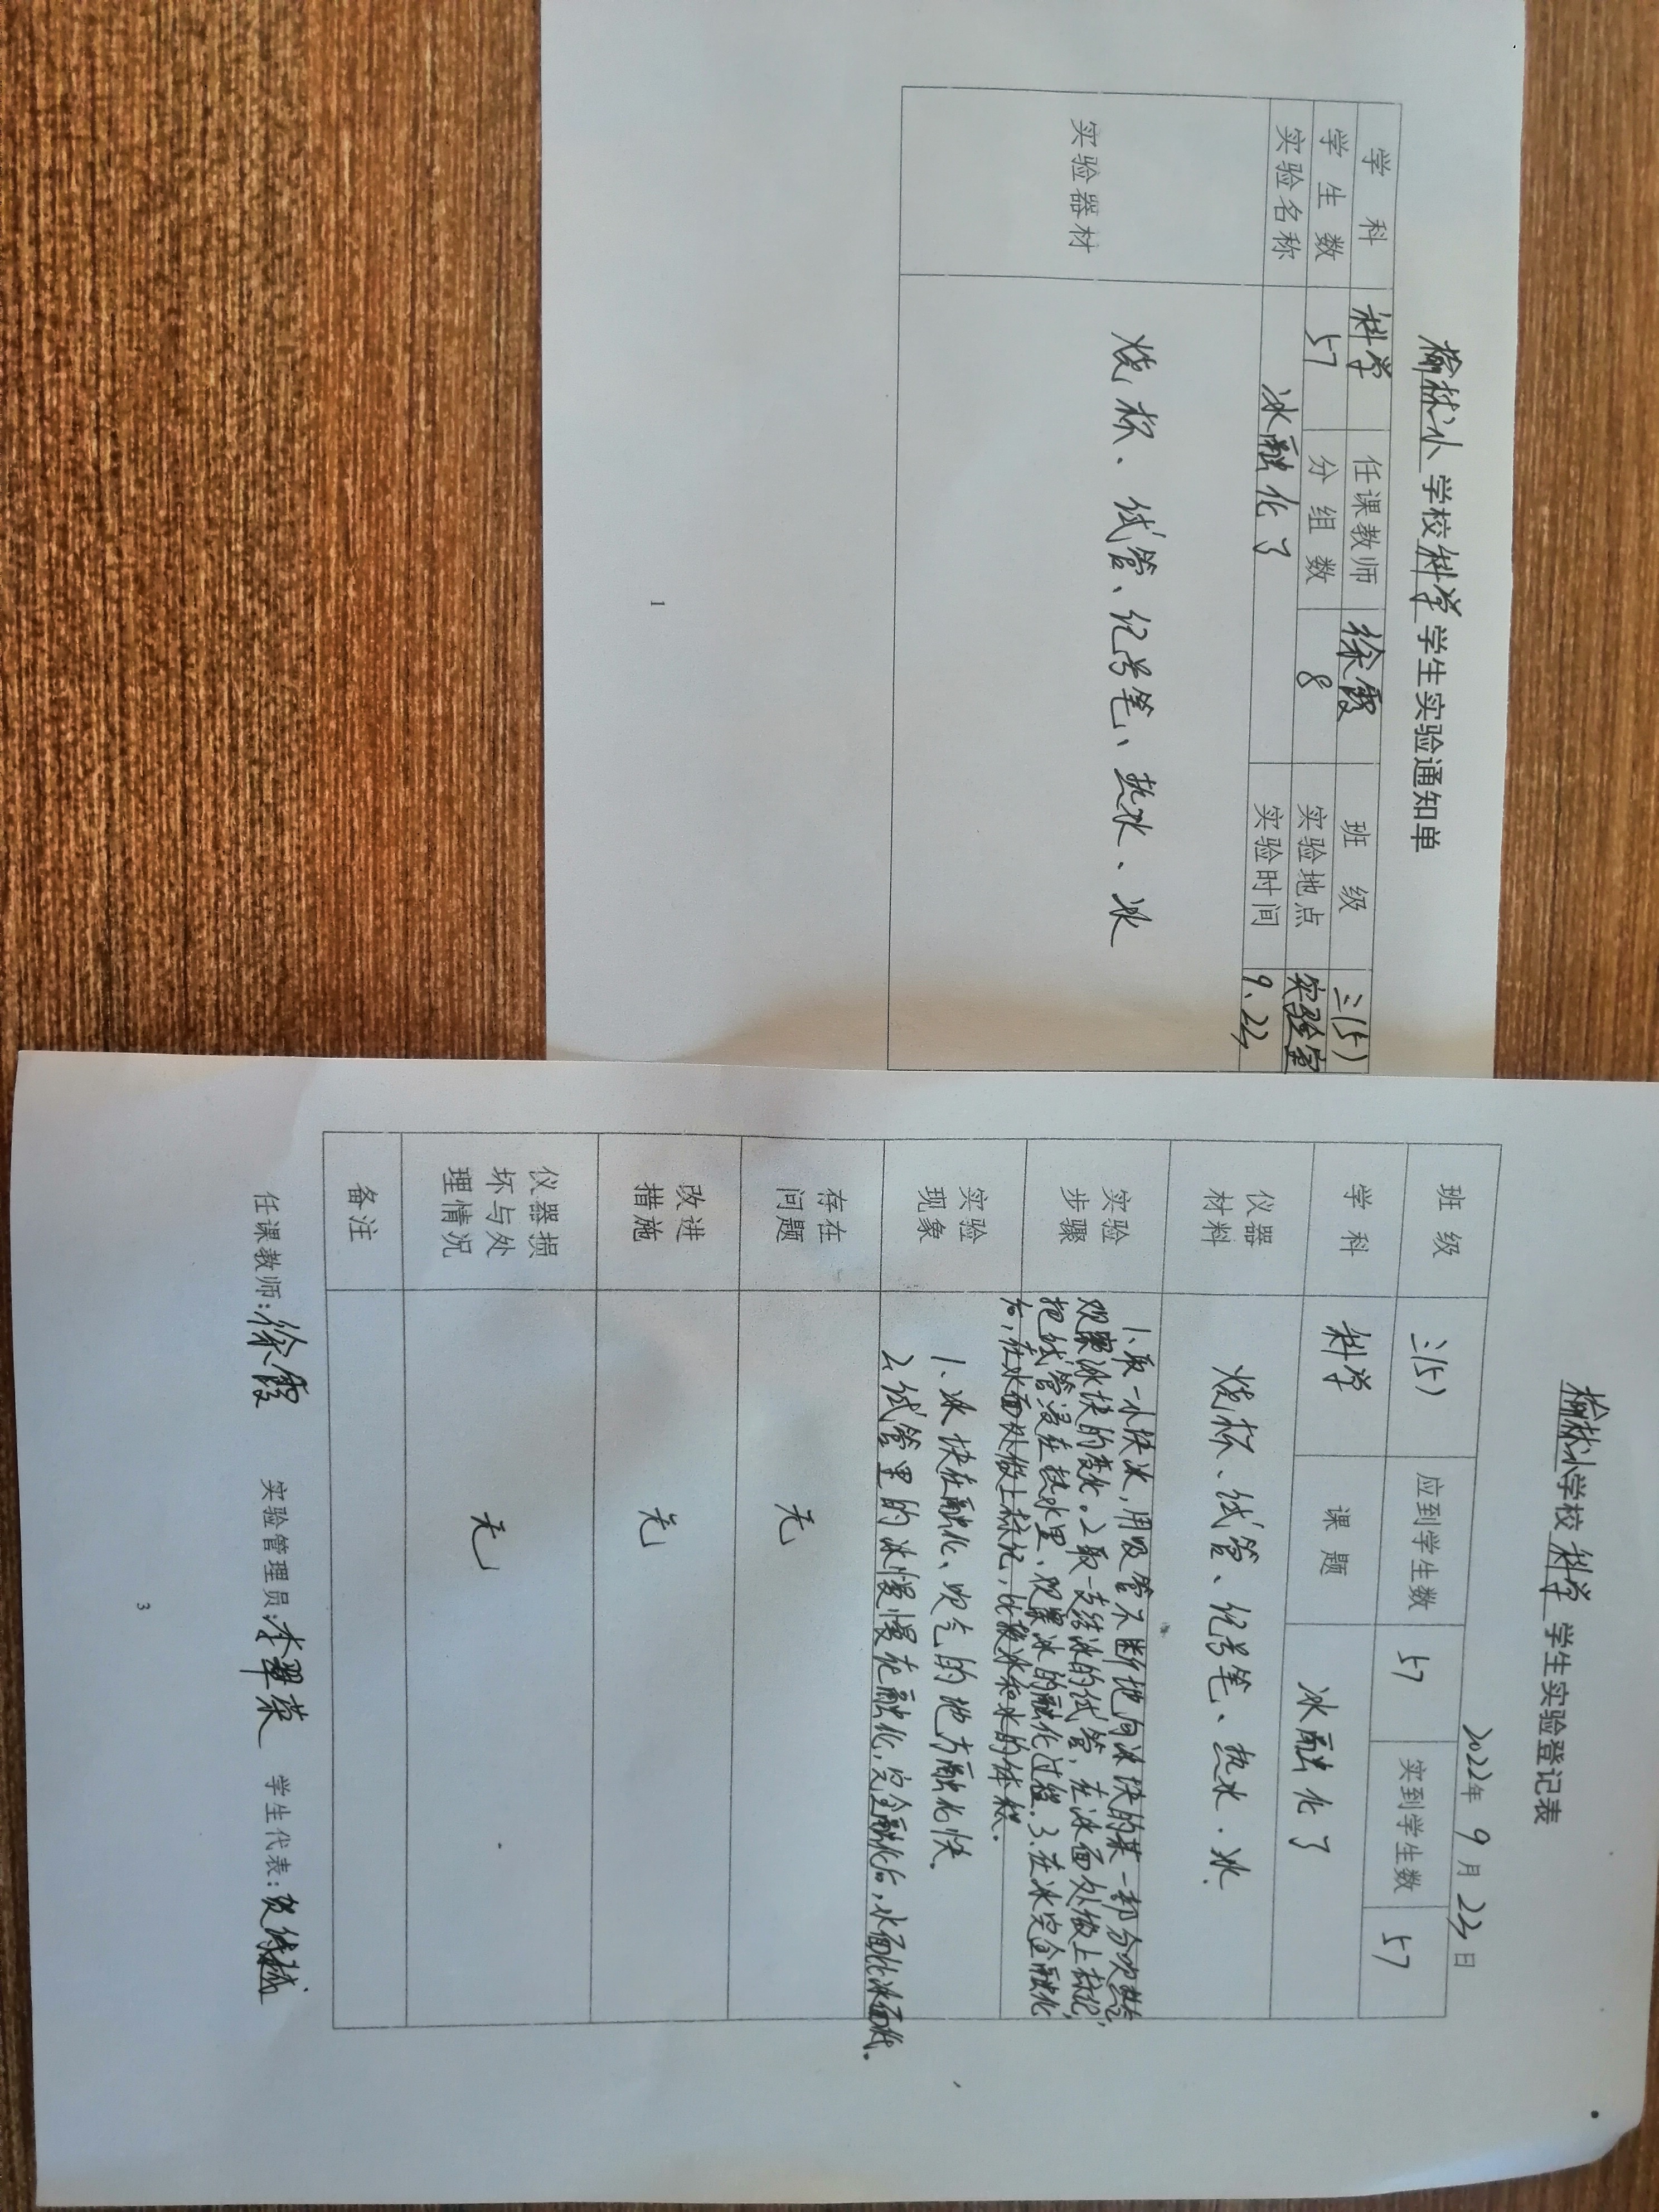 榆林小学校科学学生实验通知单
学 科 科学 任课教师 徐霞 班 级 三(5)
学 生 数 57 分 组 数 8 实验地点 实验室
实验名称 冰融化了 实验时间 9.22
实验器材 烧杯、试管、记号笔、热水、冰
1
榆林小学校科学学生实验登记表
2022年9月22日
班 级 三(5) 应到学生数 57 实到学生数 57
学 科 科学 课 题 冰融化了
仪器
材料
烧杯、试管、记号笔、热水.冰.
实验
步骤
1.取一小块冰,用吸管不断地向冰块的某一部分吹热气,
观察冰块的变化。2取一支结冰的试管,在冰面处做上标记,
把试管浸在热水里,观察冰的融化过程.3.在冰完全融化
后,在水面处做上标记,比较冰和水的体积.
实验
现象
1.冰块在融化、吹气的地方融化快.
2.试管里的冰慢慢在融化,完全融化后,水面比冰面低.
存在
问题
无
改进
措施
无
仪器损
坏与处
理情况
无
备注
任课教师:徐霞 实验管理员:李翠荣 学生代表:
3